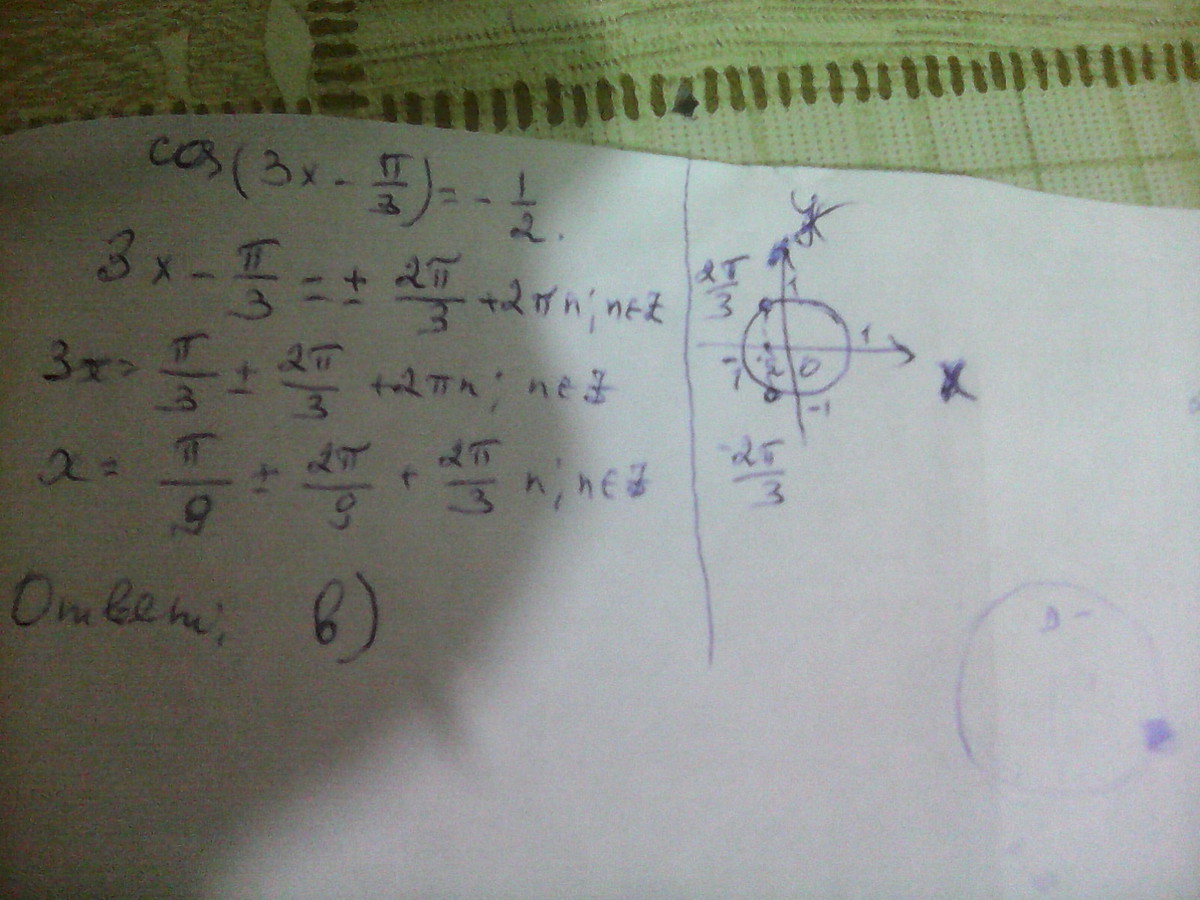 cos(3x - π/3) = - 1/2.
3x - π/3 = ± 2π/3 + 2πn; n∈Z
3x = π/3 ± 2π/3 + 2πn; n∈Z
x = π/9 ± 2π/9 + 2π/3 n; n∈Z
Ответ: в)
y
2π/3
1
1
-1
0
x
-1
-2π/3